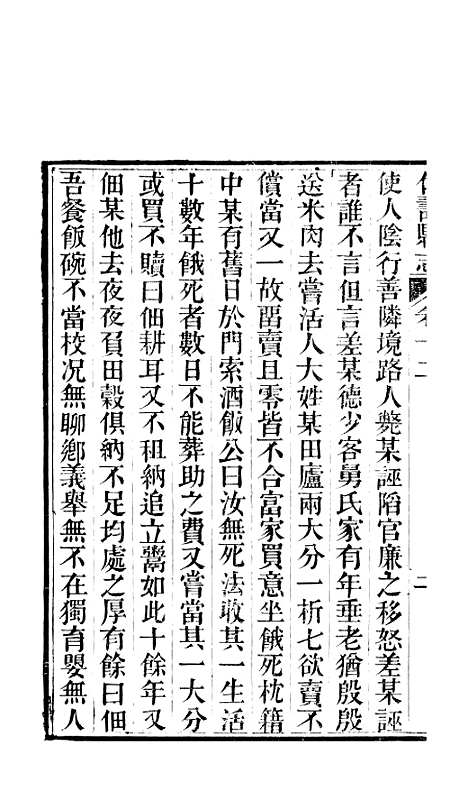 縣志 卷十二 二
使人陰行善隣境路人斃某誣陷官廉之移怒差某誣
者誰不言但言差某德少客舅氏家有年垂老猶殷殷
送米肉去嘗活人大姓某田廬兩大分一析七欲賣不
償當又一故留賣且零皆不合富家買意坐餓死枕籍
中某有舊日於門索酒飯公曰汝無死法敢其一生活
十數年餓死者數日不能葬助之費又嘗當其一大分
或買不贖曰佃耕耳又不租納追立鬻如此十餘年又
佃某他去夜夜負田穀俱納不足均處之厚有餘曰佃
吾餐飯碗不當校况無聊鄉義舉無不在獨育嬰無人